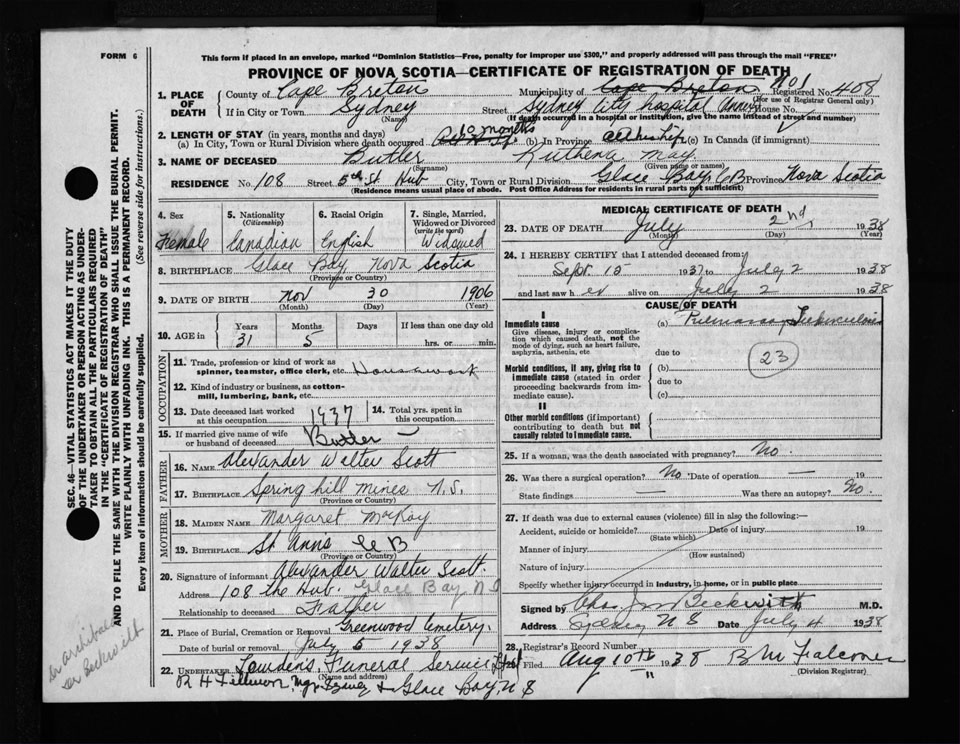 FORM 6
This form if placed in an envelope, marked "Dominion Statistics—Free, penalty for improper use $300," and properly addressed will pass through the mail "FREE"
PROVINCE OF NOVA SCOTIA—CERTIFICATE OF REGISTRATION OF DEATH
No 1
1. PLACE OF DEATH County of Cape Breton Municipality of Cape Breton Registered No. 408
(For use of Registrar General only)
If in City or Town Sydney Street Sydney City Hospital Annex House No.
(Name) (If death occurred in a hospital or institution, give the name instead of street and number)
2. LENGTH OF STAY (in years, months and days)
(a) In City, Town or Rural Division where death occurred 10 months (b) In Province all her life (c) In Canada (if immigrant)
3. NAME OF DECEASED Butler Ruthena May
(Surname) (Given name or names)
RESIDENCE No. 108 Street 5th St Hub City, Town or Rural Division Glace Bay C B Province Nova Scotia
(Residence means usual place of abode. Post Office Address for residents in rural parts not sufficient)
4. Sex 5. Nationality (Citizenship) 6. Racial Origin 7. Single, Married, Widowed or Divorced (write the word)
Female Canadian English Widowed
8. BIRTHPLACE Glace Bay Nova Scotia
(Province or Country)
9. DATE OF BIRTH Nov 30 1906
(Month) (Day) (Year)
10. AGE in Years Months Days If less than one day old
31 5 hrs. or min.
OCCUPATION
11. Trade, profession or kind of work as spinner, teamster, office clerk, etc. Housework
12. Kind of industry or business, as cotton-mill, lumbering, bank, etc.
13. Date deceased last worked at this occupation 1937 14. Total yrs. spent in this occupation
15. If married give name of wife or husband of deceased Butler —
FATHER
16. NAME Alexander Walter Scott
17. BIRTHPLACE Spring hill mines N.S.
(Province or Country)
MOTHER
18. MAIDEN NAME Margaret MacKay
19. BIRTHPLACE St Anns C B
(Province or Country)
20. Signature of informant Alexander Walter Scott
Address 108 the Hub. Glace Bay, N S
Relationship to deceased Father
21. Place of Burial, Cremation or Removal Greenwood Cemetery.
Date of burial or removal July 5 1938
22. UNDERTAKER Lowden's Funeral Service Ltd
(Name and address)
Glace Bay, N S
MEDICAL CERTIFICATE OF DEATH
23. DATE OF DEATH July 2nd 1938
(Month) (Day) (Year)
24. I HEREBY CERTIFY that I attended deceased from
Sept 15 1937 to July 2 1938
and last saw her alive on July 2 1938
CAUSE OF DEATH
I
Immediate cause
Give disease, injury or complication which caused death, not the mode of dying, such as heart failure, asphyxia, asthenia, etc
(a) Pulmonary Tuberculosis
due to
23
Morbid conditions, if any, giving rise to immediate cause (stated in order proceeding backwards from immediate cause).
(b)
due to
(c)
II
Other morbid conditions (if important) contributing to death but not causally related to immediate cause.
25. If a woman, was the death associated with pregnancy? No.
26. Was there a surgical operation? No Date of operation — 19
State findings — Was there an autopsy? No.
27. If death was due to external causes (violence) fill in also the following:—
Accident, suicide or homicide? Date of injury 19
(State which)
Manner of injury
(How sustained)
Nature of injury
Specify whether injury occurred in industry, in home, or in public place
Signed by Chas Beckwith M.D.
Address Sydney N S Date July 4 1938
28. Registrar's Record Number
Filed Aug 10th 1938 B M Falconer
(Division Registrar)
SEC. 46—VITAL STATISTICS ACT MAKES IT THE DUTY OF THE UNDERTAKER OR PERSON ACTING AS UNDERTAKER TO OBTAIN ALL THE PARTICULARS REQUIRED IN THE "CERTIFICATE OF REGISTRATION OF DEATH"
AND TO FILE THE SAME WITH THE DIVISION REGISTRAR WHO SHALL ISSUE THE BURIAL PERMIT.
WRITE PLAINLY WITH UNFADING INK. THIS IS A PERMANENT RECORD.
Every item of information should be carefully supplied. (See reverse side for instructions.)
Dr Archibald
Dr Beckwith